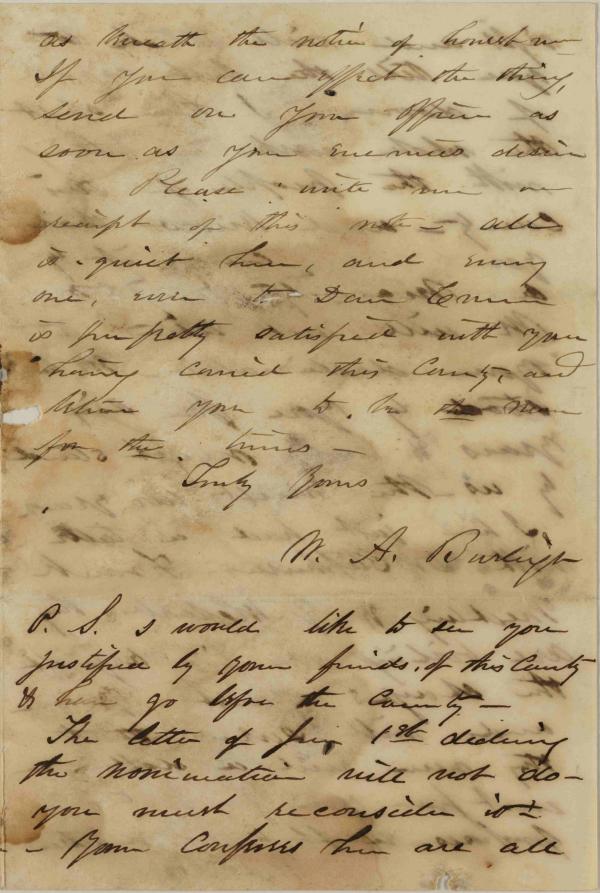 as beneath the notice of honest men
If you can effect the thing,
send on your office as
soon as your enemies desire
Please write me on
receipt of this note – all
is quiet here, and every
one, even to Dan
is perfectly satisfied with your
having carried this County, and
believe you to be the man
for the times –
Truly Yours
W. A. Burleigh
P. S. I would like to see you
justified by your friends, of this County
& have go before the County –
The letter of 1st declining
the nomination will not do –
you must reconsider it –
– Your here are all